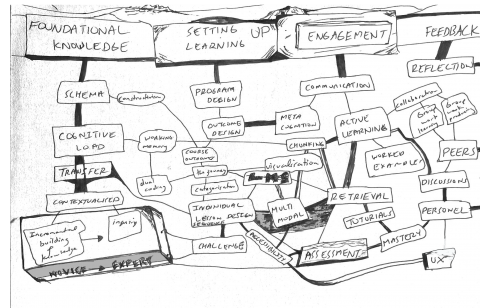 FOUNDATIONAL
KNOWLEDGE
SETTING UP
LEARNING
ENGAGEMENT
FEEDBACK
REFLECTION
SCHEMA
construction
PROGRAM
DESIGN
COMMUNICATION
META
COGNITION
collaboration
COGNITIVE
LOAD
working
memory
OUTCOME
DESIGN
COURSE
OUTCOMES
CHUNKING
ACTIVE
LEARNING
PEERS
WORKED
EXAMPLES
TRANSFER
dual
coding
visualisation
DISCUSSIONS
CONTEXTUALISED
INDIVIDUAL
LESSON DESIGN
SEQUENCE
MULTI
MODAL
RETRIEVAL
TUTORIALS
PERSONEL
Incremental
building
of
knowledge
inquiry
CHALLENGE
ACCESSIBILITY
ASSESSMENT
MASTERY
UX
NOVICE
EXPERT